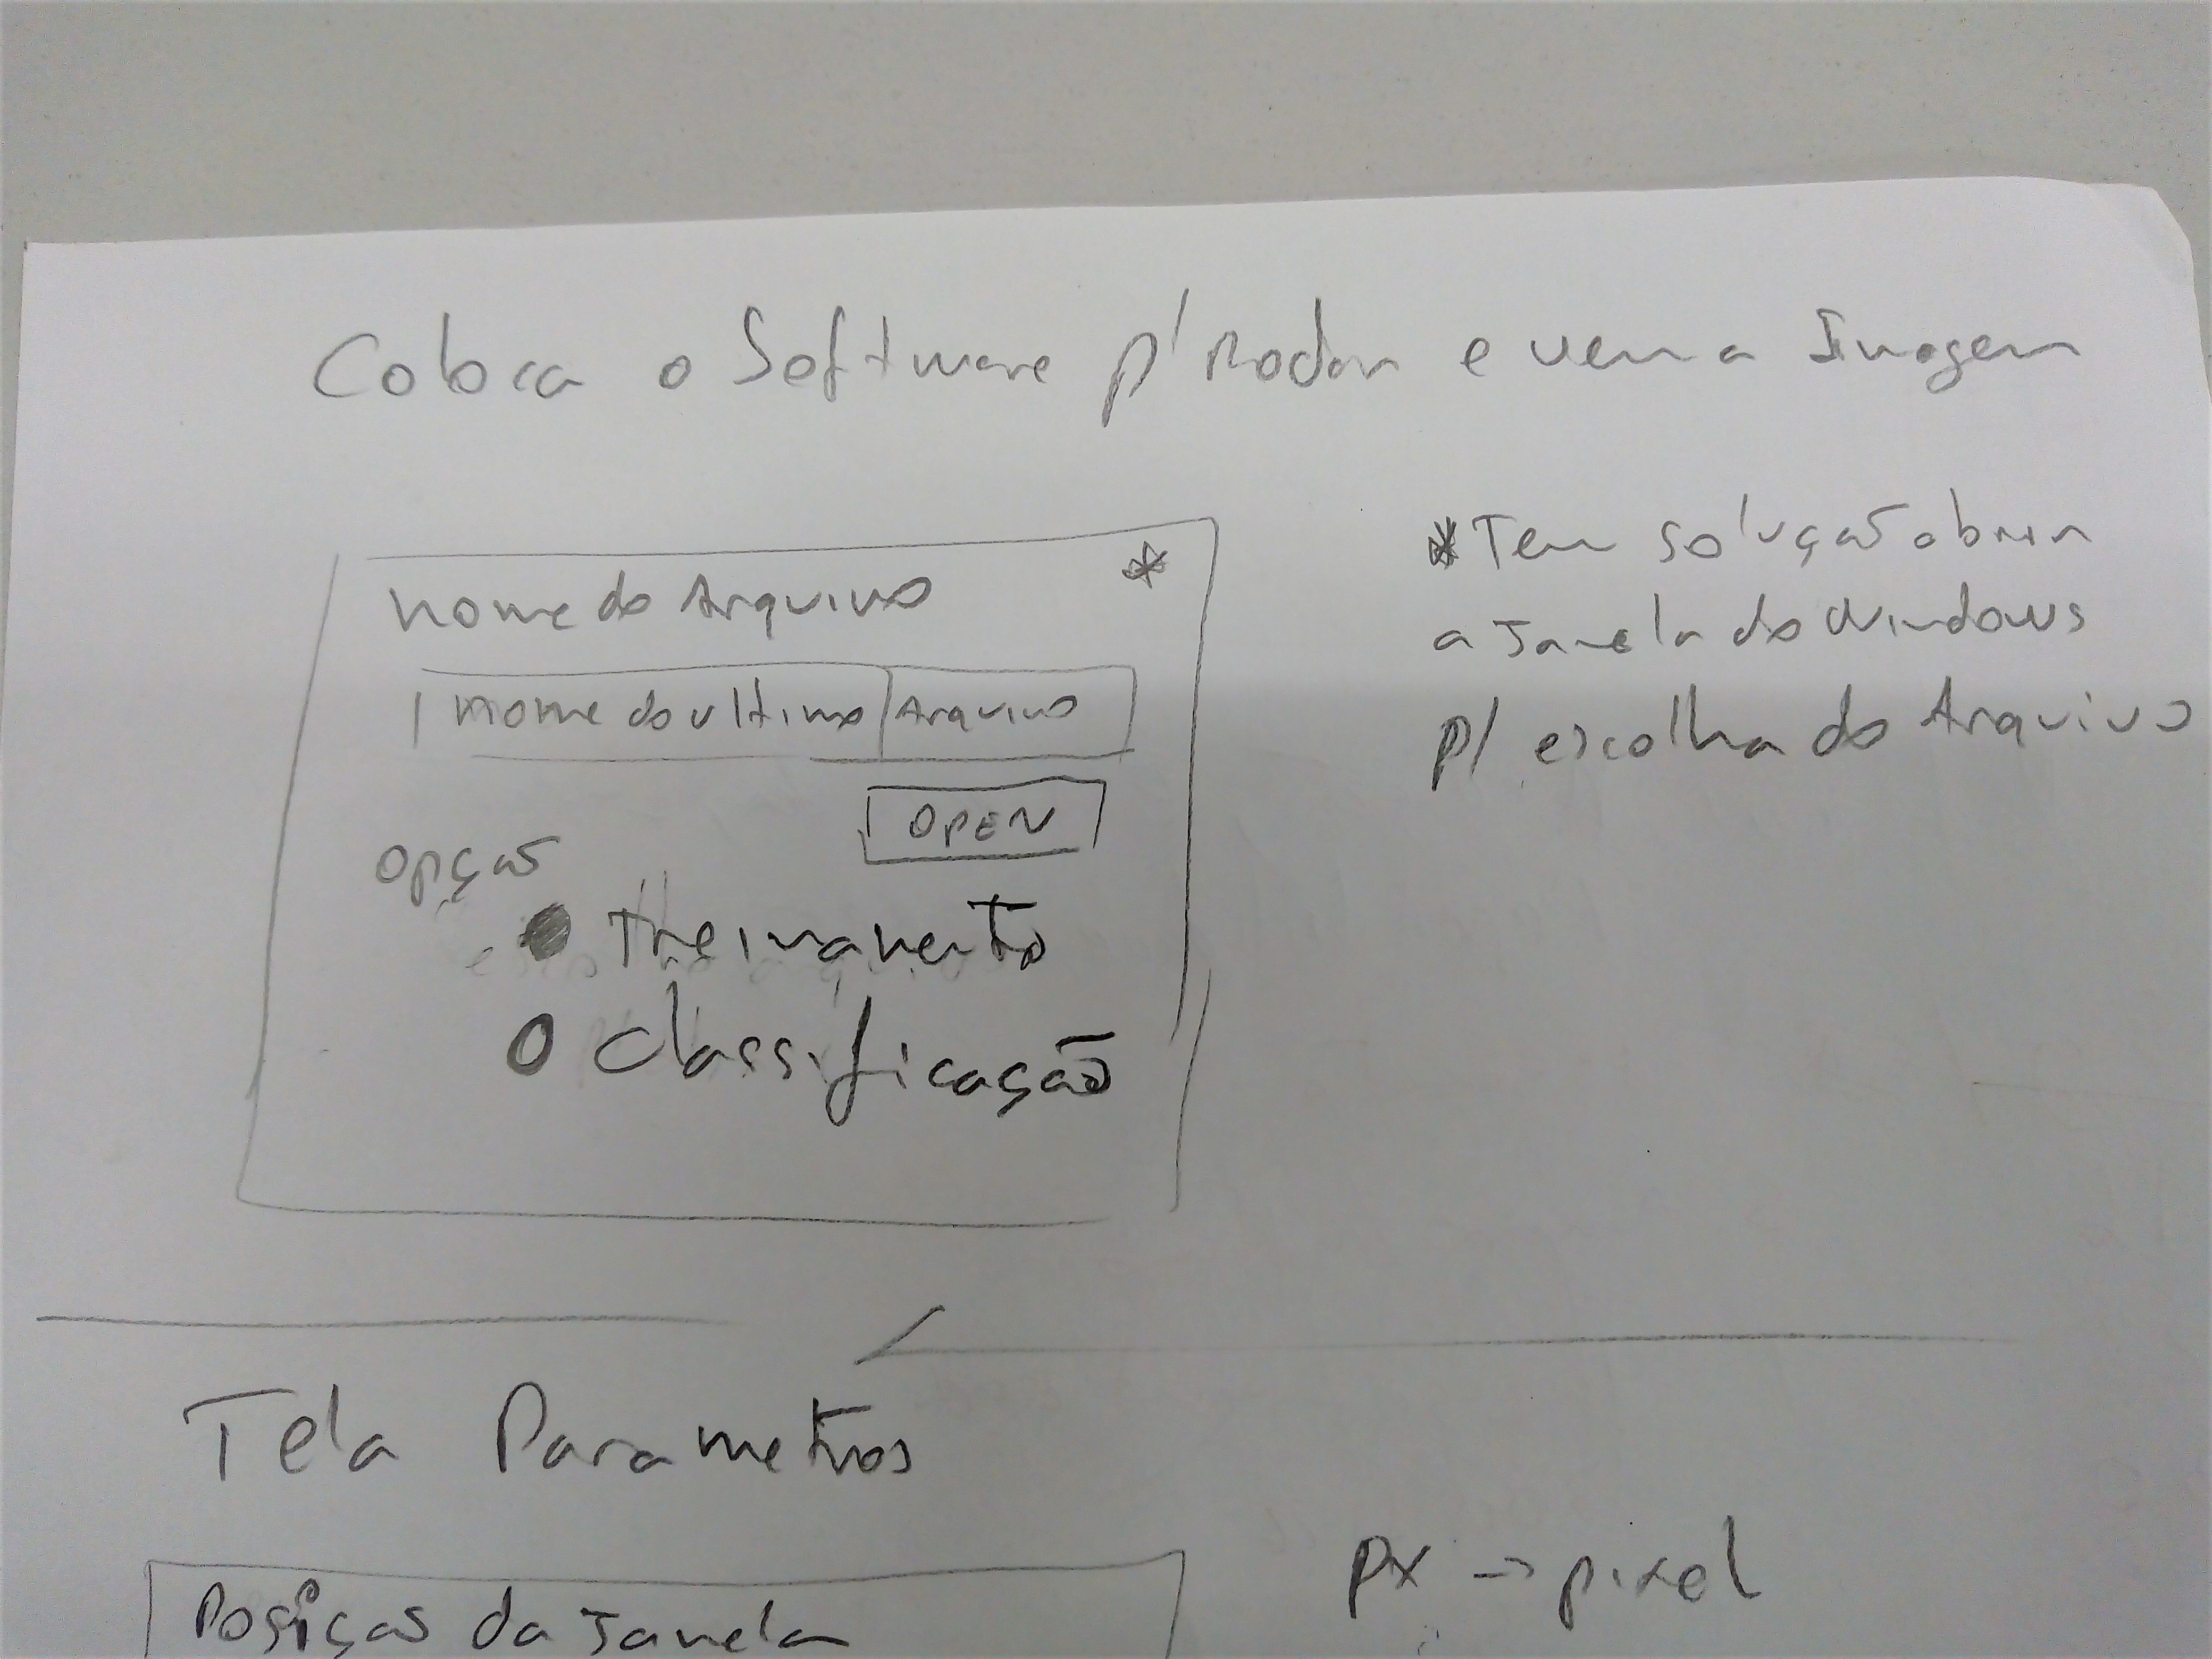 Coloca o Software p/ Rodar e vem a Imagem
nome do Arquivo *
nome do ultimo Arquivo
OPEN
opção
Treinamento
Classificação
* Tem solução abrir
a Janela do Windows
p/ escolha do Arquivo
Tela Parametros
Posição da Janela
px -> pixel